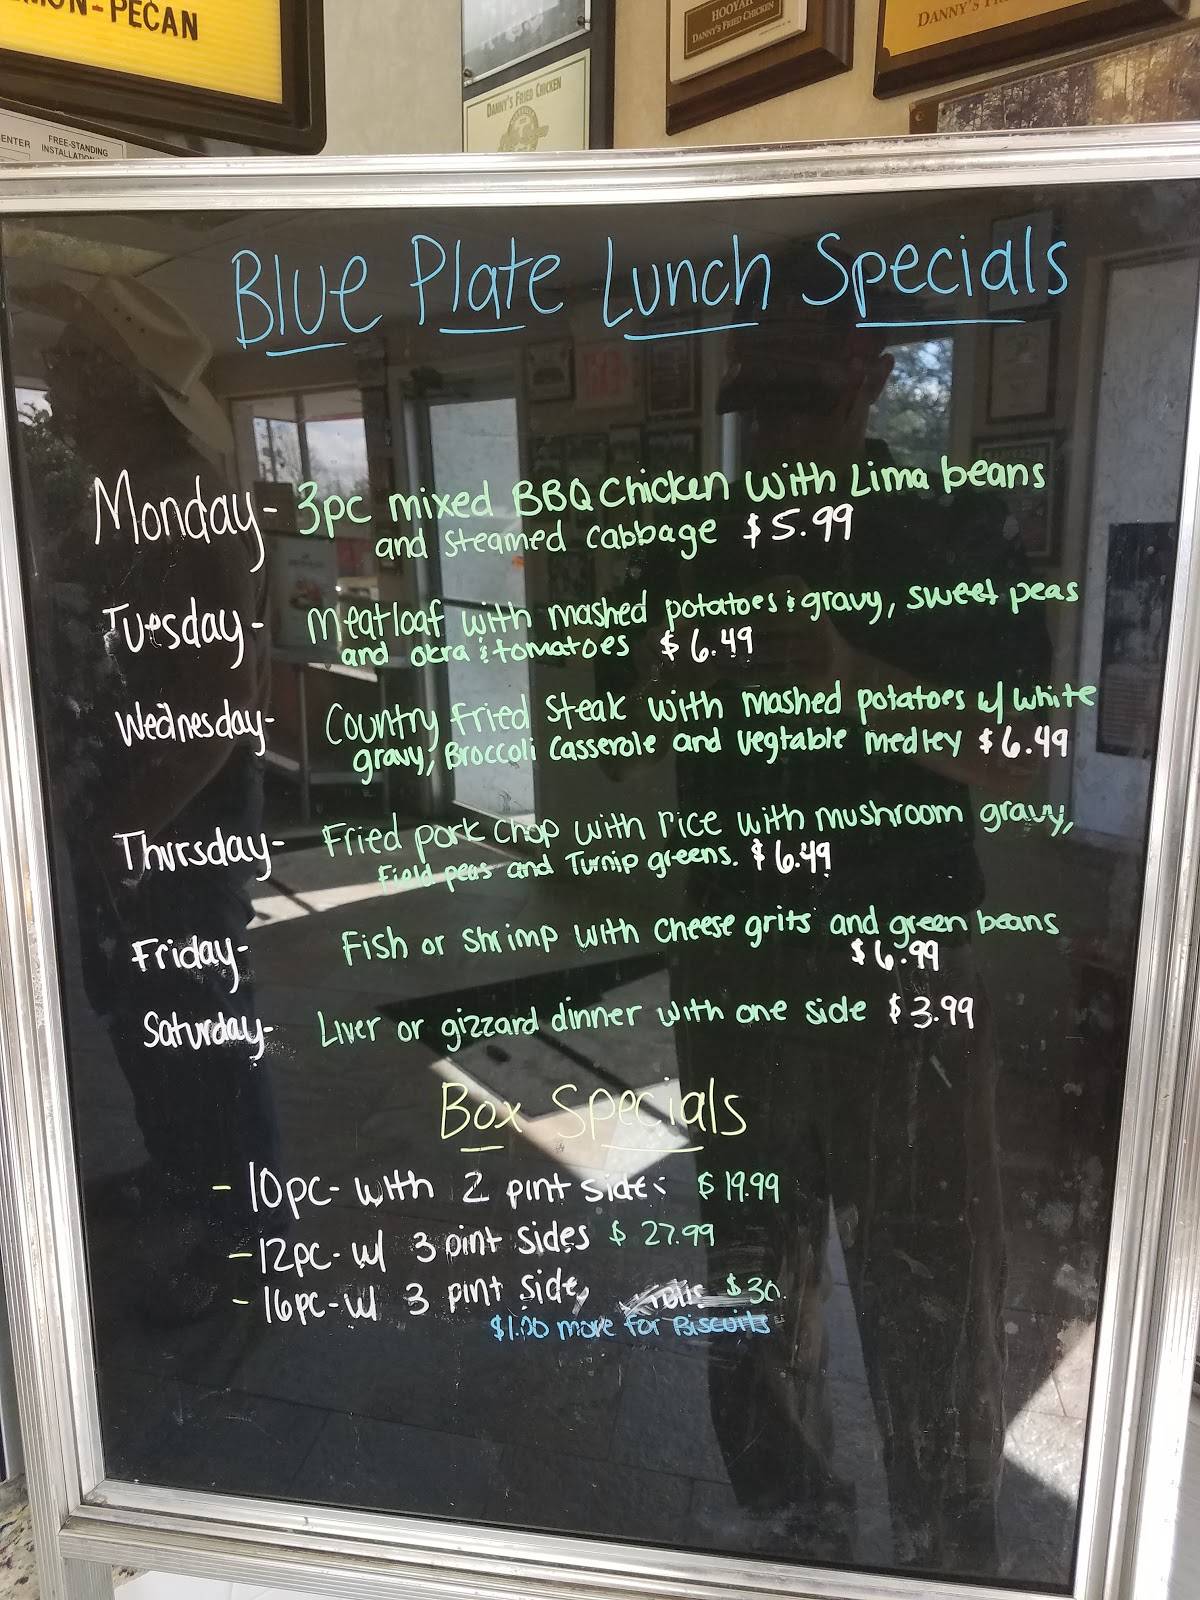 -PECAN
ENTER
FREE-STANDING
DANNY'S FRIED CHICKEN
HOOYAH
DANNY'S FRIED CHICKEN
DANNY'S
Blue Plate Lunch Specials
Monday- 3pc mixed BBQ Chicken with Lima beans
and steamed cabbage $5.99
Tuesday- Meatloaf with mashed potatoes & gravy, sweet peas
and okra & tomatoes $6.49
Wednesday- Country fried steak with mashed potatoes w/ white
gravy, Broccoli Casserole and vegtable medley $6.49
Thursday- Fried pork chop with rice with mushroom gravy,
Field peas and Turnip greens. $6.49
Friday- Fish or shrimp with cheese grits and green beans
$6.99
Saturday- Liver or gizzard dinner with one side $3.99
Box Specials
- 10pc- with 2 pint sides $19.99
- 12pc- w/ 3 pint sides $27.99
- 16pc- w/ 3 pint side $30.
$1.00 more for Biscuits